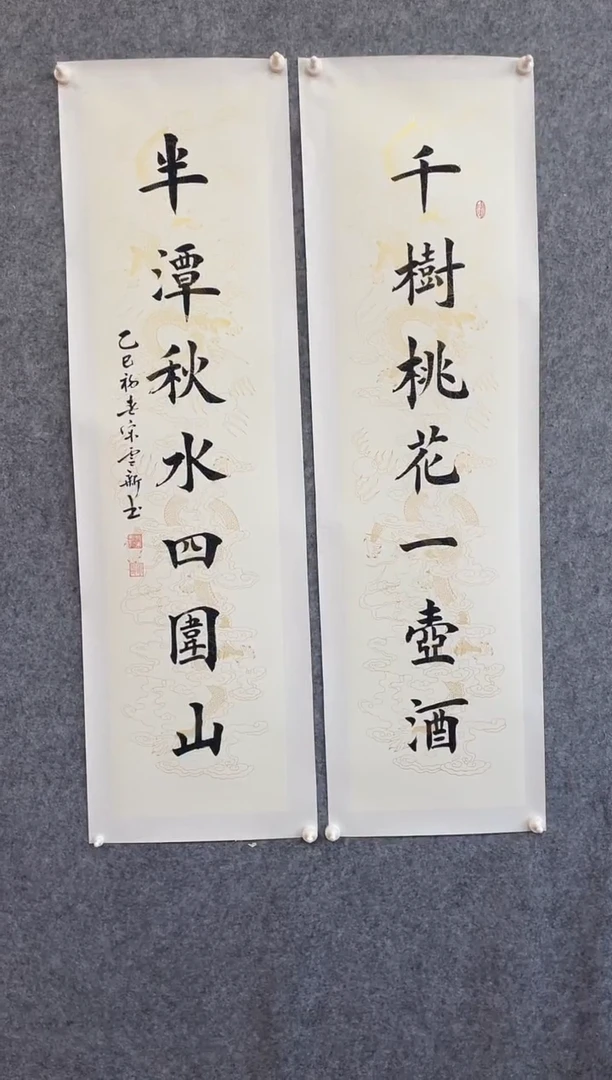 千樹桃花一壺酒
半潭秋水四圍山
乙巳初春宋雲新书